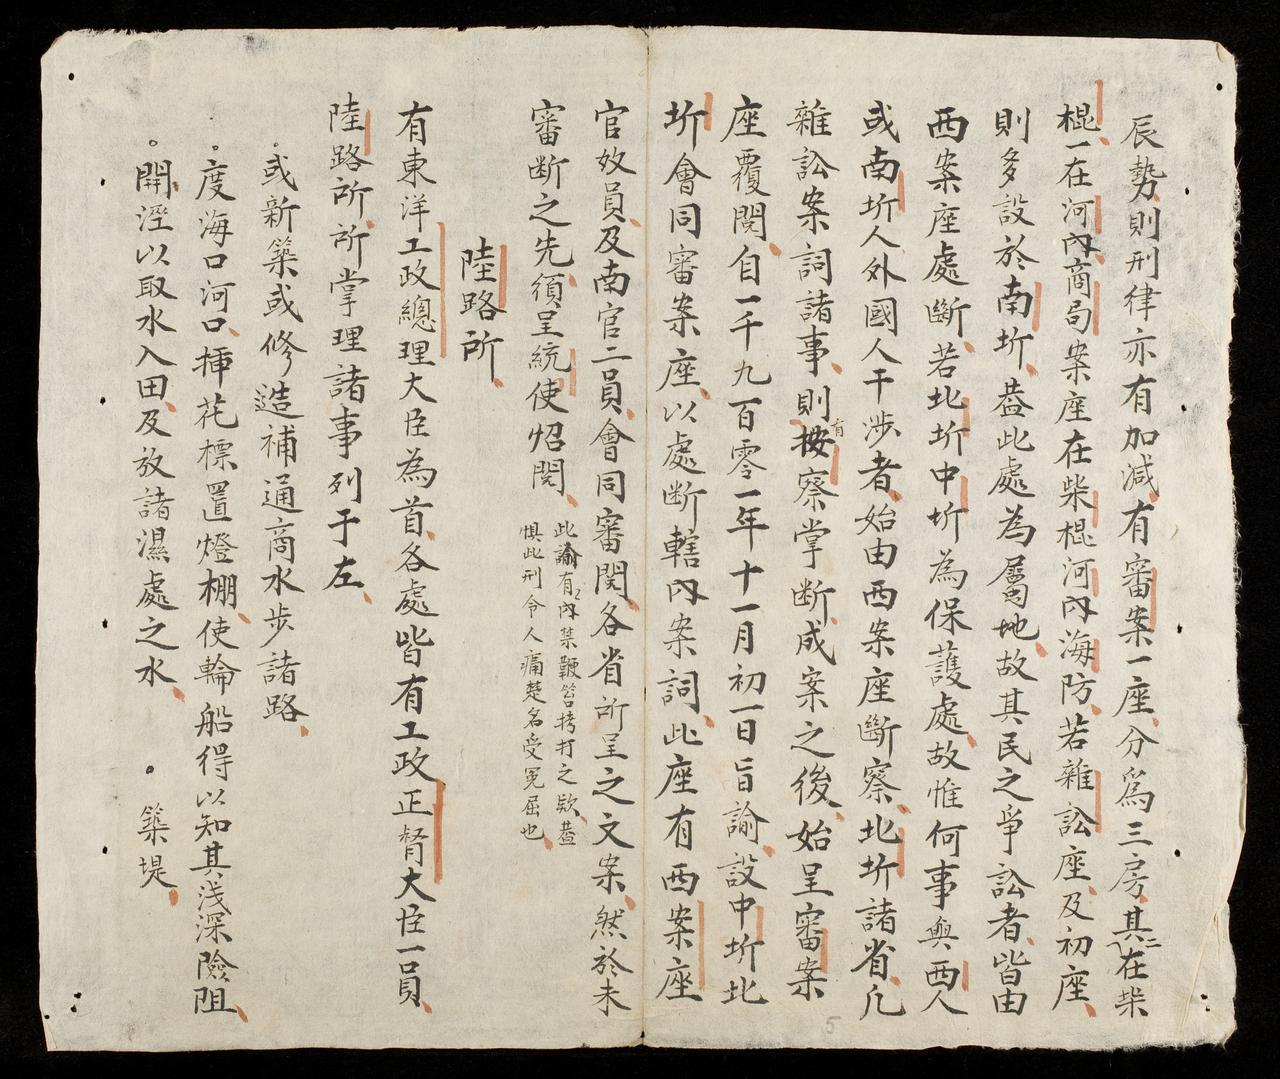 辰勢則刑律亦有加減有審案一座分爲三房其二在柴
棍一在河內商局案座在柴棍河內海防若雜訟座及初座
則多設於南圻葢此處為屬地故其民之爭訟者皆由
西案座處斷若北圻中圻為保護處故惟何事與西人
或南圻人外國人干涉者始由西案座斷察北圻諸省凡
雜訟案詞諸事則有按察掌斷成案之後始呈審案
座覆閱自一千九百零一年十一月初一日旨諭設中圻北
圻會同審案座以處斷轄內案詞此座有西案座
官奴員及南官二員會同審閱各省所呈之文案然於未
審斷之先須呈統使炤閱
此諭有內禁鞭笞拷打之欵葢
惧此刑令人痛楚名受冤屈也
陸路所
有東洋工政總理大臣為首各處皆有工政正督大臣一員
陸路所所掌理諸事列于左
。或新築或修造補通商水步諸路
。度海口河口揷花標置燈棚使輪船得以知其浅深險阻
。開溼以取水入田及放諸濕處之水 。築堤
5